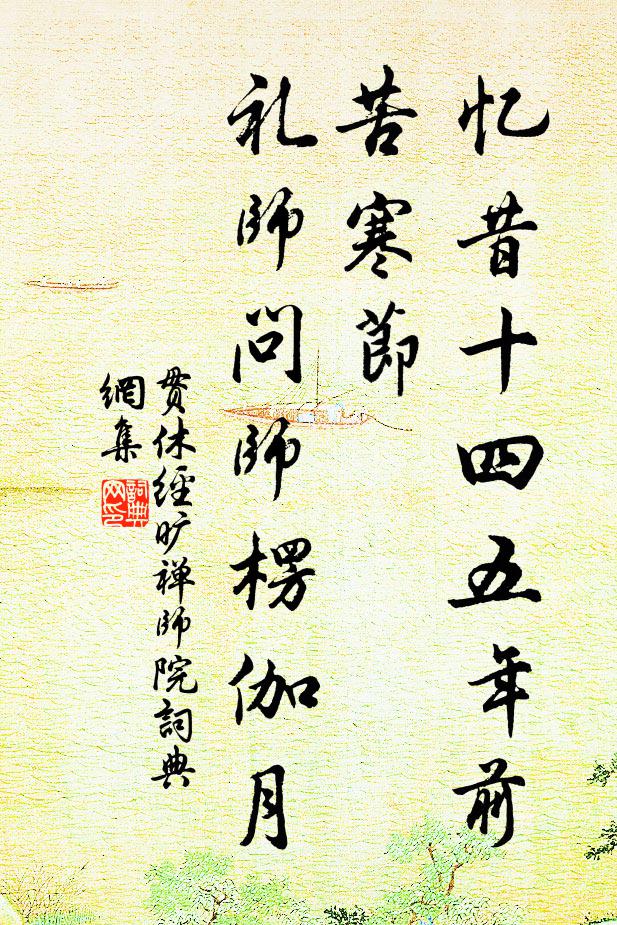 忆昔十四五年前
苦寒節
礼師問師楞伽月
贯休經旷禅師院詞典
網集
詞典
网印